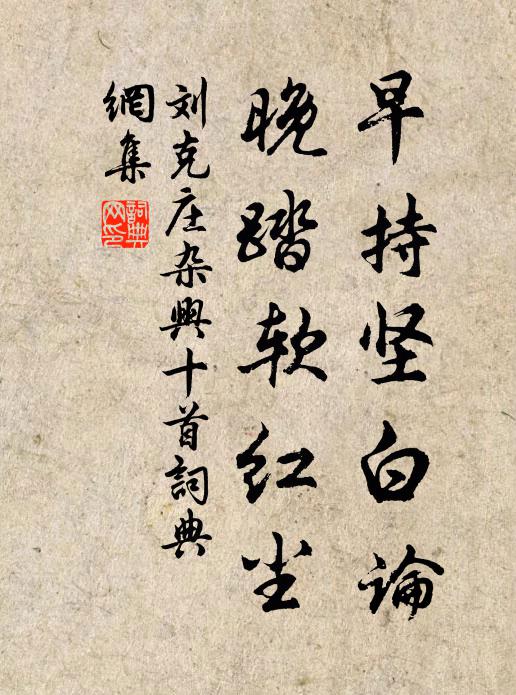 早持坚白论
晚踏软红尘
刘克庄杂興十首詞典
網集
詞典
网印